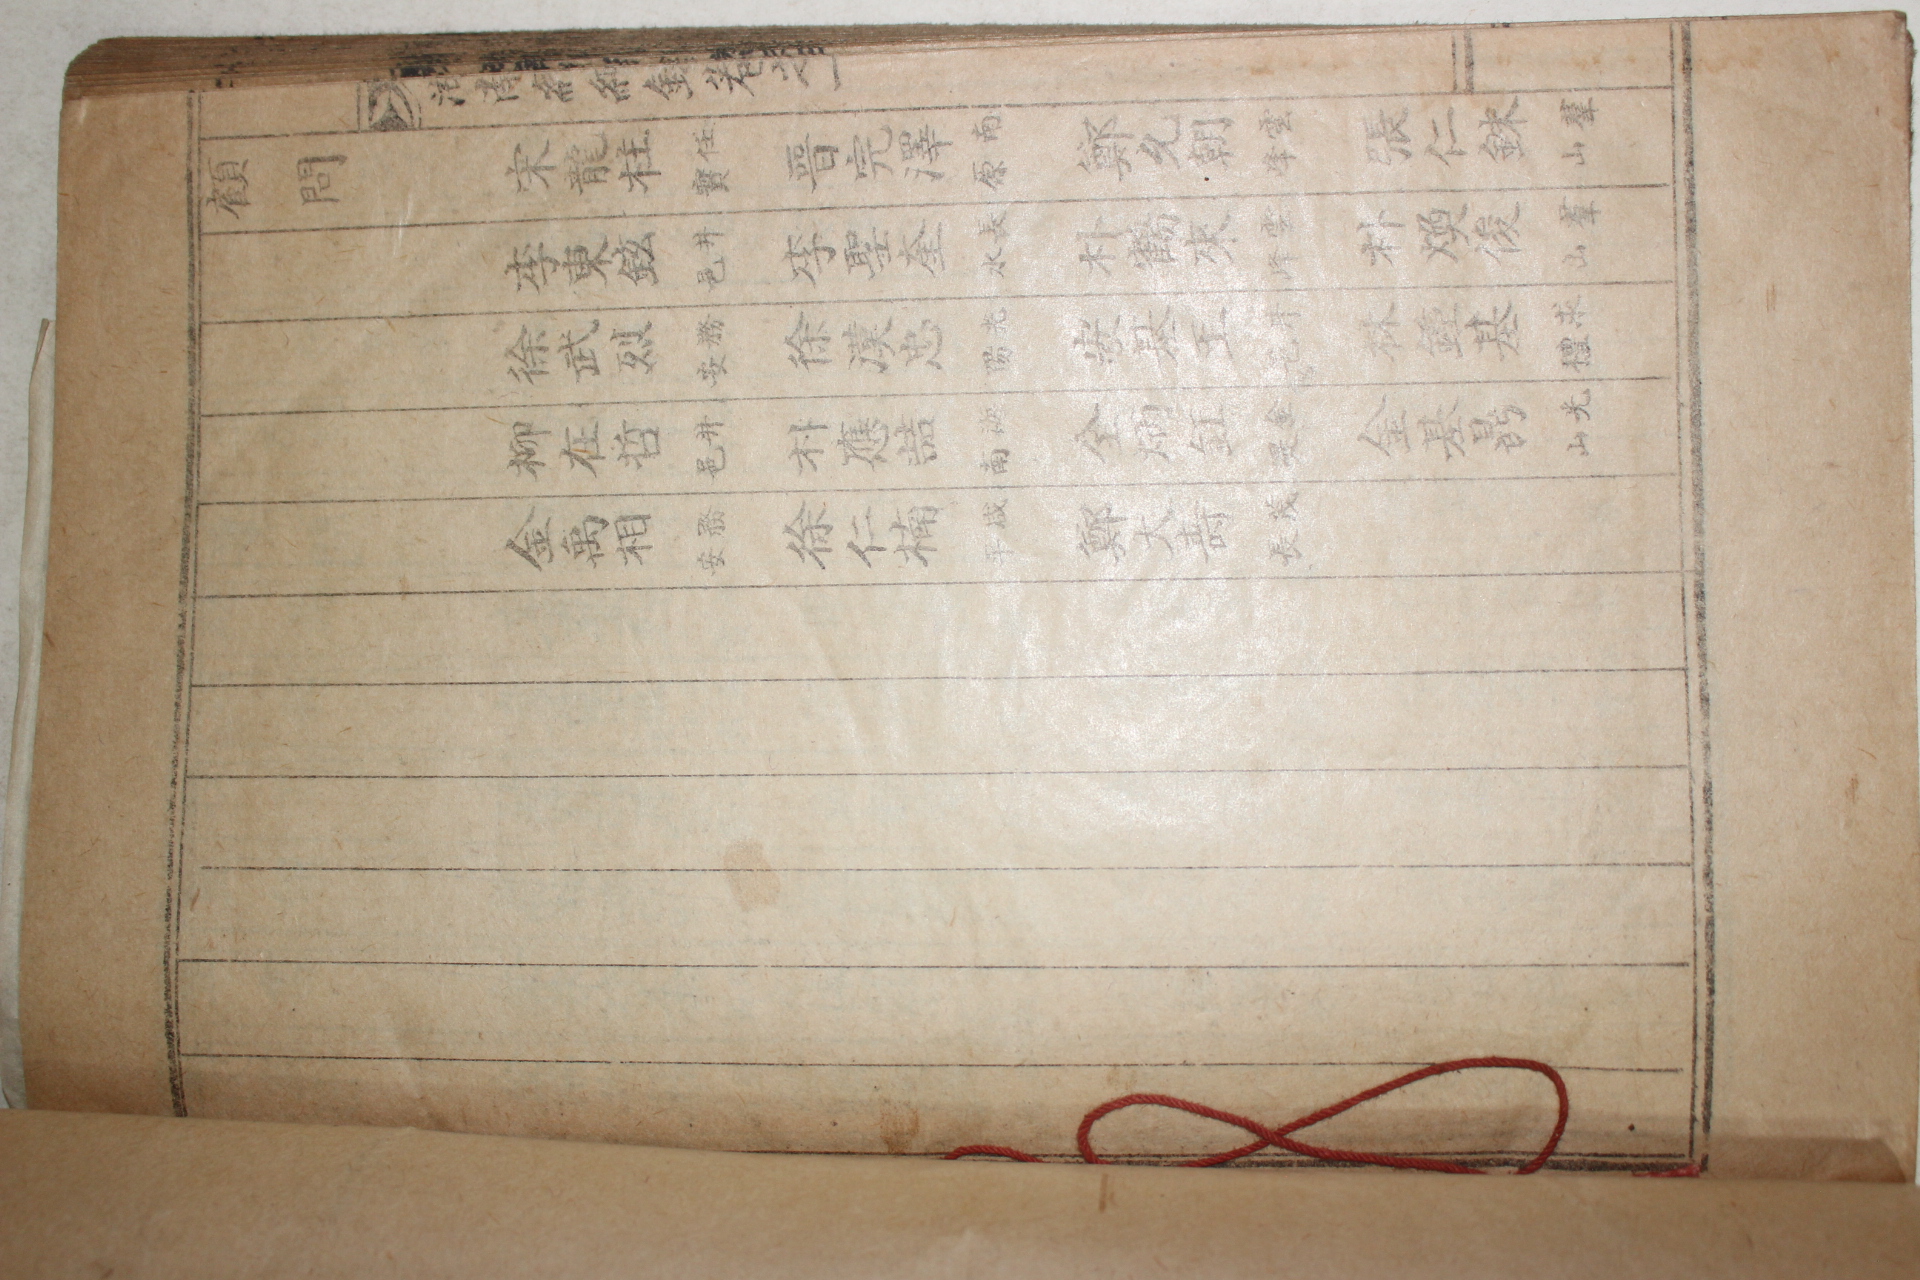 顧問
宋龍柱 任實 晋完澤 南原 鄭久朝 雲峰 張仁銖 羣山
李東鉉 井邑 李聖奎 長水 朴鶴來 雲峰 朴煥俊 羣山
徐武烈 務安 徐漢忠 光陽 安基玉 井邑 林鍾基 求禮
柳在哲 井邑 朴應喆 海南 全炳釭 金堤 金基 光山
金禹相 務安 徐仁楠 咸平 鄭大壽 茂長
湖南 錄卷之一